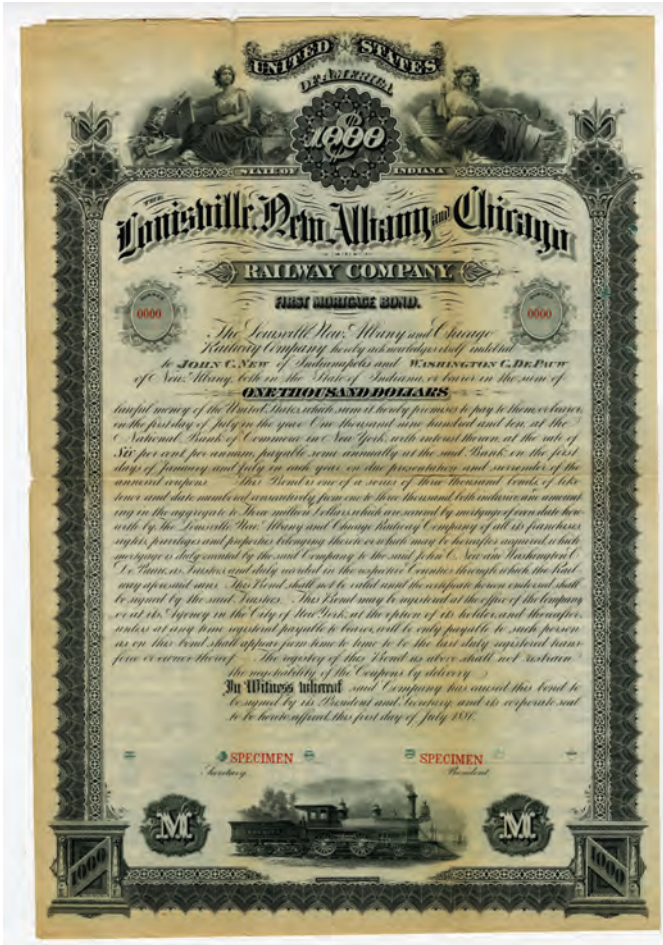 UNITED STATES
OF AMERICA
$1000
STATE OF INDIANA
THE
Louisville, New Albany and Chicago
RAILWAY COMPANY.
FIRST MORTGAGE BOND.
0000 0000
The Louisville New Albany and Chicago
Railway Company hereby acknowledges itself indebted
to JOHN C. NEW of Indianapolis and WASHINGTON C. DE PAUW
of New Albany, both in the State of Indiana, or bearer in the sum of
ONE THOUSAND DOLLARS
lawful money of the United States, which sum it hereby promises to pay to them or bearer,
on the first day of July in the year One thousand nine hundred and ten, at the
National Bank of Commerce in New York, with interest thereon, at the rate of
Six per cent per annum, payable semi annually at the said Bank on the first
days of January and July in each year, on due presentation and surrender of the
annexed coupons. This Bond is one of a series of three thousand bonds, of like
tenor and date numbered consecutively from one to three thousand, both inclusive, and amount
ing in the aggregate to Three million Dollars, which are secured by mortgage of even date here
with by The Louisville New Albany and Chicago Railway Company of all its franchises,
rights, privileges and properties belonging thereto or which may be hereafter acquired, which
mortgage is duly executed by the said Company to the said John C. New and Washington C.
De Pauw, as Trustees and duly recorded in the respective Counties through which the Rail
way aforesaid runs. This Bond shall not be valid until the certificate hereon endorsed shall
be signed by the said Trustees. This Bond may be registered at the office of the Company
or at its Agency in the City of New York, at the option of its holder, and thereafter,
unless at any time registered payable to bearer, will be only payable to such person
as on this bond shall appear from time to time to be the last duly registered trans
feree or owner thereof. The registry of this Bond as above shall not restrain
the negotiability of the Coupons by delivery.
In Witness whereof said Company has caused this bond to
be signed by its President and Secretary, and its corporate seal
to be hereto affixed, this first day of July
SPECIMEN SPECIMEN
Secretary President
M M
1000 1000